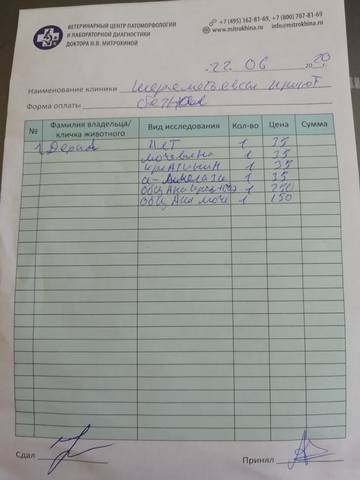 ВЕТЕРИНАРНЫЙ ЦЕНТР ПАТОМОРФОЛОГИИ
И ЛАБОРАТОРНОЙ ДИАГНОСТИКИ
ДОКТОРА Н.В. МИТРОХИНОЙ
+7 (495) 162-81-69, +7 (800) 707-81-69
www.mitrokhina.ru info@mitrokhina.ru
22 06 2020
Наименование клиники приют
Форма оплаты
№ Фамилия владельца/кличка животного Вид исследования Кол-во Цена Сумма
1 АЛТ 1 35
мочевина 1 35
креатинин 1 35
α-Амилаза 1 35
общ Ан 1 250
общ Ан мочи 1 150
Сдал Принял